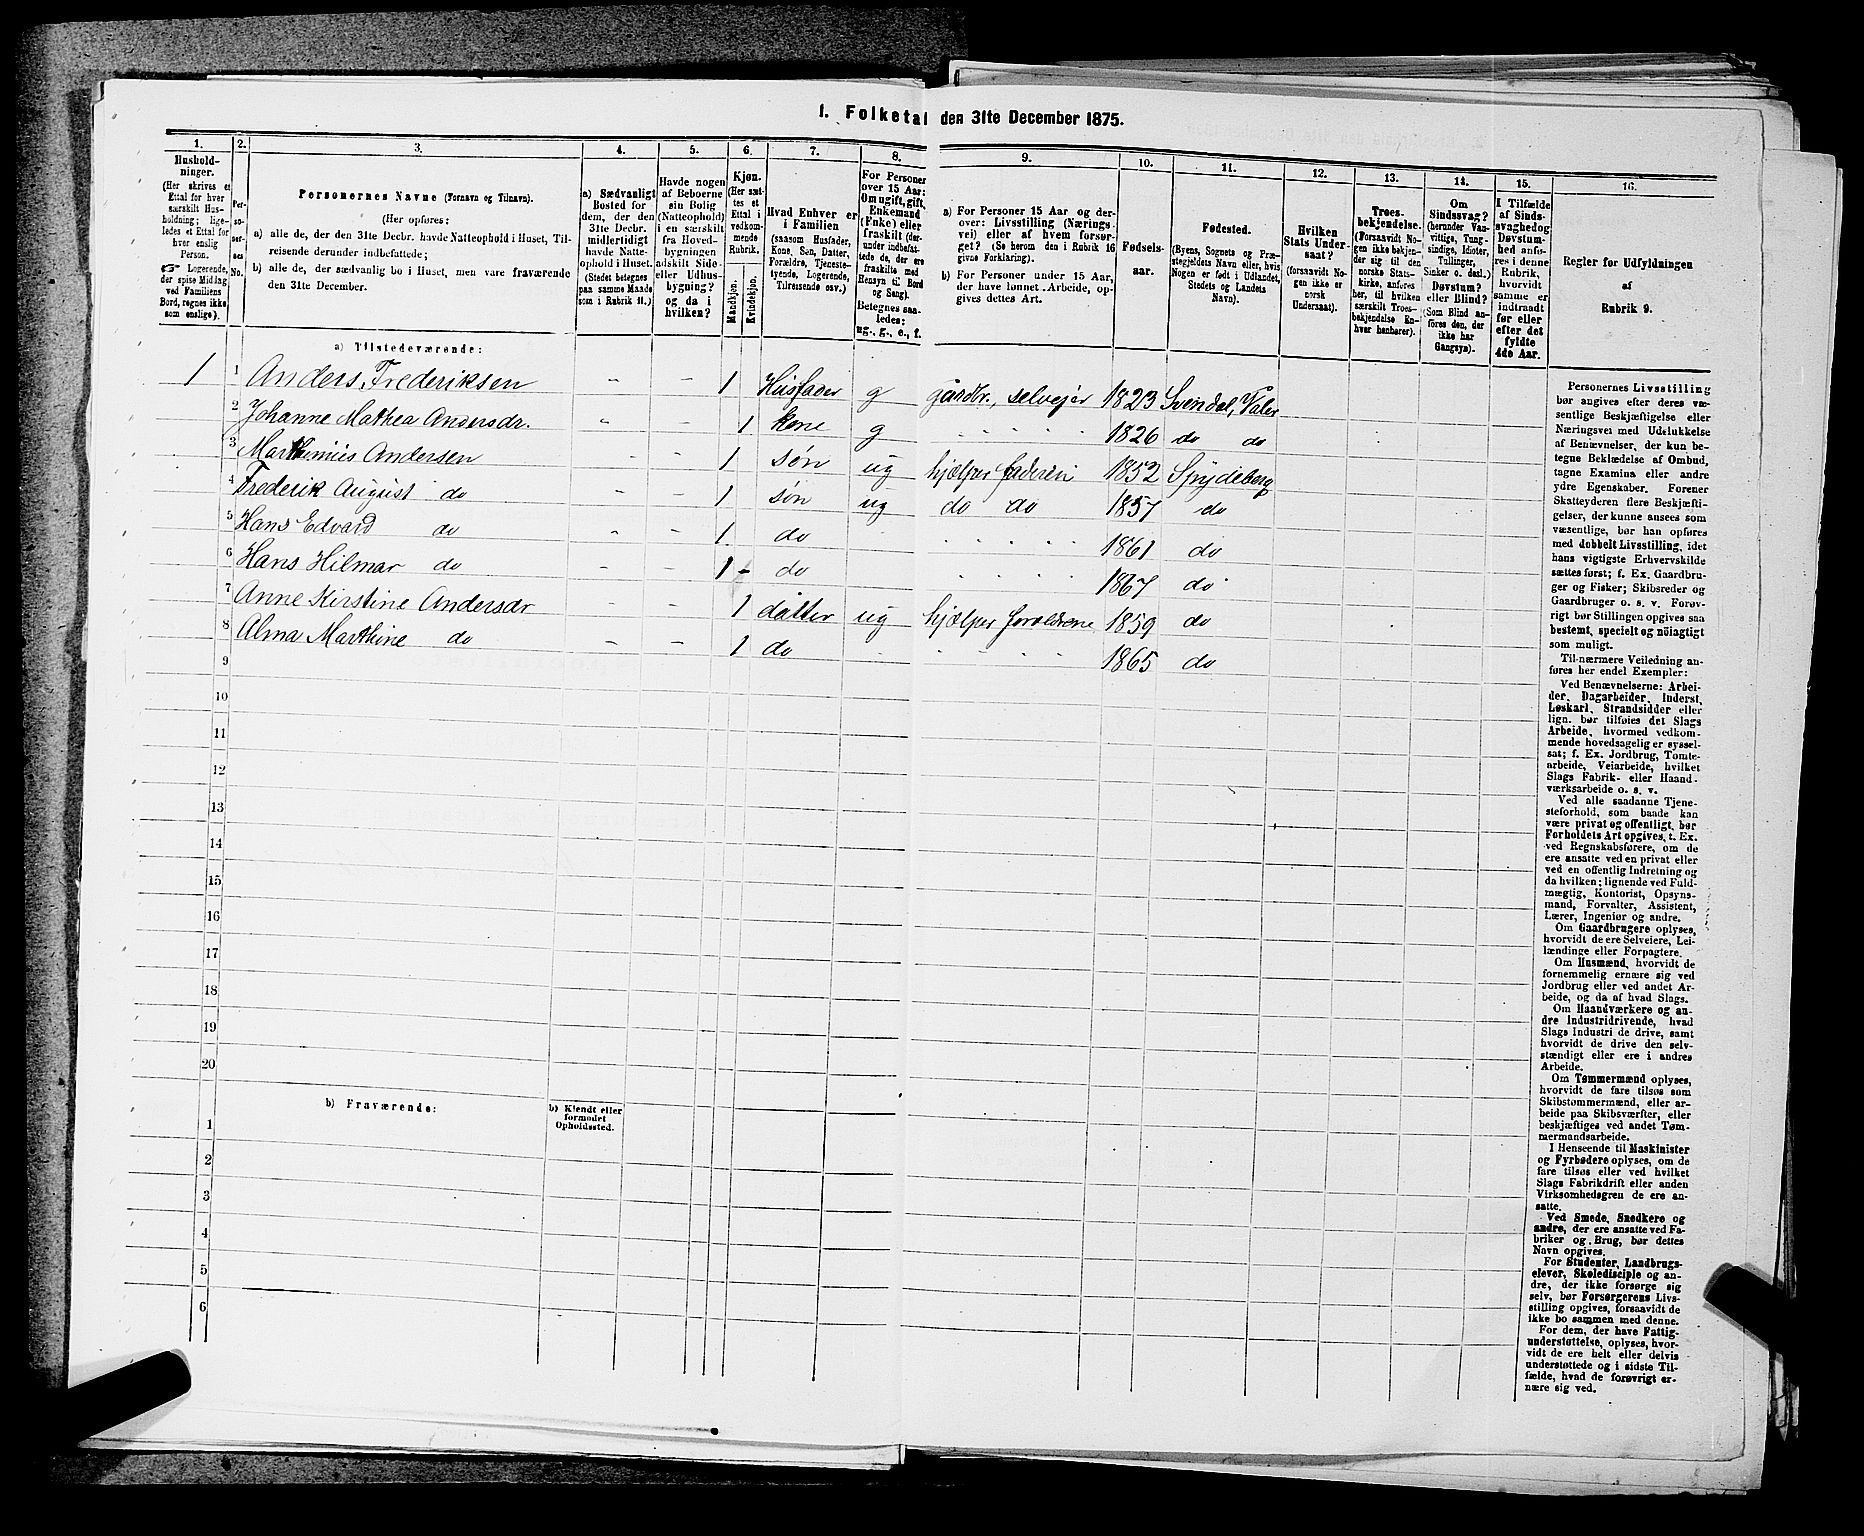 1. Folketal den 31te December 1875.
1.
2.
3.
4.
5.
6.
7.
8.
9.
10.
11.
12.
13.
14.
15.
16.
Hushold-
ninger.
(Her skrives et
Ettal for hver
særskilt Hus-
holdning; lige-
ledes et Ettal for
hver enslig
Person.
☞ Logerende,
der spise Middag
ved Familiens
Bord, regnes ikke
som enslige).
Per-
so-
ner-
nes
No.
Personernes Navne (Fornavn og Tilnavn).
(Her opføres:
a) alle de, der den 31te Decbr. havde Natteophold i Huset, Til-
reisende derunder indbefattede;
b) alle de, der sædvanlig bo i Huset, men vare fraværende
den 31te December.
a) Sædvanligt
Bosted for
dem, der den
31te Decbr.
midlertidigt
havde Natte-
ophold i Huset.
(Stedet betegnes
paa samme Maade
som i Rubrik 11.)
Havde nogen
af Beboerne
sin Bolig
(Natteophold)
i en særskilt
fra Hoved-
bygningen
adskilt Side-
eller Udhus-
bygning?
og da i
hvilken?
Kjøn.
(Her sæt-
tes et
Ettal i
vedkom-
mende
Rubrik.
Mandkjøn.
Kvindekjøn.
Hvad Enhver er
i Familien
(saasom Husfader,
Kone, Søn, Datter,
Forældre, Tjeneste-
tyende, Logerende,
Tilreisende osv.)
For Personer
over 15 Aar:
Om ugift, gift,
Enkemand
(Enke) eller
fraskilt (der-
under indbefat-
tede de, der ere
fraskilte med
Hensyn til Bord
og Seng).
Betegnes saa-
ledes:
ug., g., e., f.
a) For Personer 15 Aar og der-
over: Livsstilling (Nærings-
vei) eller af hvem forsør-
get? (Se herom den i Rubrik 16
givne Forklaring).
b) For Personer under 15 Aar,
der have lønnet Arbeide, op-
gives dettes Art.
Fødsels-
aar.
Fødested.
(Byens, Sognets og Præ-
stegjeldets Navn eller, hvis
Nogen er født i Udlandet,
Stedets og Landets
Navn).
Hvilken
Stats Under-
saat?
(forsaavidt No-
gen ikke er
norsk
Undersaat).
Troes-
bekjendelse.
(Forsaavidt No-
gen ikke bekjen-
der sig til den
norske Stats-
kirke, anføres
her, til hvilken
særskilt Troes-
bekjendelse En-
hver henhører).
Om
Sindssvag?
(herunder Van-
vittige, Tung-
sindige, Idioter,
Tullinger,
Sinker o. desl.)
Døvstum?
eller Blind?
(Som Blind an-
føres den, der
ikke har
Gangsyn).
I Tilfælde
af Sinds-
svaghed og
Døvstum-
hed anfø-
res i denne
Rubrik,
hvorvidt
samme er
indtraadt
før eller
efter det
fyldte
4de Aar.
Regler for Udfyldningen
af
Rubrik 9.
a) Tilstedeværende:
1 1 Anders Frederiksen - - 1 Husfader g gaardbr., selvejer 1823 Svendal, Valer
2 Johanne Mathea Andersdr. - - 1 kone g 1826 do do
3 Marthinius Andersen - - 1 søn ug hjælper faderen 1852 Spydeberg
4 Frederik August do - - 1 søn ug do do 1857 do
5 Hans Edvard do - - 1 do 1861 do
6 Hans Hilmar do - - 1 - do 1867 do
7 Anne Kirstine Andersdr - - 1 datter ug hjælper forældrene 1859 do
8 Alma Marthine do - - 1 do 1865 do
9
10
11
12
13
14
15
16
17
18
19
20
b) Fraværende:
b) Kjendt eller
formodet
Opholdssted.
1
2
3
4
5
6
Personernes Livsstilling
bør angives efter deres væ-
sentlige Beskjæftigelse eller
Næringsvei med Udelukkelse
af Benævnelser, der kun be-
tegne Beklædelse af Ombud,
tagne Examina eller andre
ydre Egenskaber. Forener
Skatteyderen flere Beskjæfti-
gelser, der kunne ansees som
væsentlige, bør han opføres
med dobbelt Livsstilling, idet
hans vigtigste Erhvervskilde
sættes først; f. Ex. Gaardbru-
ger og Fisker; Skibsreder og
Gaardbruger o. s. v. Forøv-
rigt bør Stillingen opgives saa
bestemt, specielt og nöiagtigt
som muligt.
Til nærmere Veiledning an-
føres her endel Exempler:
Ved Benævnelserne: Arbei-
der, Dagarbeider, Inderst,
Løskarl, Strandsidder eller
lign. bør tilføies det Slags
Arbeide, hvormed vedkom-
mende hovedsagelig er syssel-
sat; f. Ex. Jordbrug, Tomte-
arbeide, Veiarbeide, hvilket
Slags Fabrik- eller Haand-
værksarbeide o. s. v.
Ved alle saadanne Tjene-
steforhold, som baade kan
være privat og offentligt, bør
Forholdets Art opgives, t. Ex.
ved Regnskabsførere, om de
ere ansatte ved en privat eller
ved en offentlig Indretning og
da hvilken; lignende ved Fuld-
mægtig, Kontorist, Opsyns-
mand, Forvalter, Assistent,
Lærer, Ingeniør og andre.
Om Gaardbrugere oplyses,
hvorvidt de ere Selveiere, Lei-
lændinge eller Forpagtere.
Om Husmænd, hvorvidt de
fornemmelig ernære sig ved
Jordbrug eller ved andet Ar-
beide, og da af hvad Slags.
Om Haandværkere og an-
dre Industridrivende, hvad
Slags Industri de drive, samt
hvorvidt de drive den selv-
stændigt eller ere i andres
Arbeide.
Om Tømmermænd oplyses,
hvorvidt de fare tilsøs som
Skibstømmermænd, eller ar-
beide paa Skibsværfter, eller
beskjæftiges ved andet Tøm-
mermandsarbeide.
I Henseende til Maskinister
og Fyrbødere oplyses, om de
fare tilsøs eller ved hvilket
Slags Fabrikdrift eller anden
Virksomhedsgren de ere an-
satte.
Ved Smede, Snedkere og
andre, der ere ansatte ved Fa-
briker og Brug, bør dettes
Navn opgives.
For Studenter, Landbrugs-
elever, Skoledisciple og an-
dre, der ikke forsørge sig
selv, bør Forsørgerens Livs-
stilling opgives, forsaavidt de
ikke bo sammen med denne.
For dem, der have Fattig-
understøttelse, oplyses, hvor-
vidt de ere helt eller delvis
understøttede og i sidste Til-
fælde, hvad de forøvrigt er-
nære sig ved.